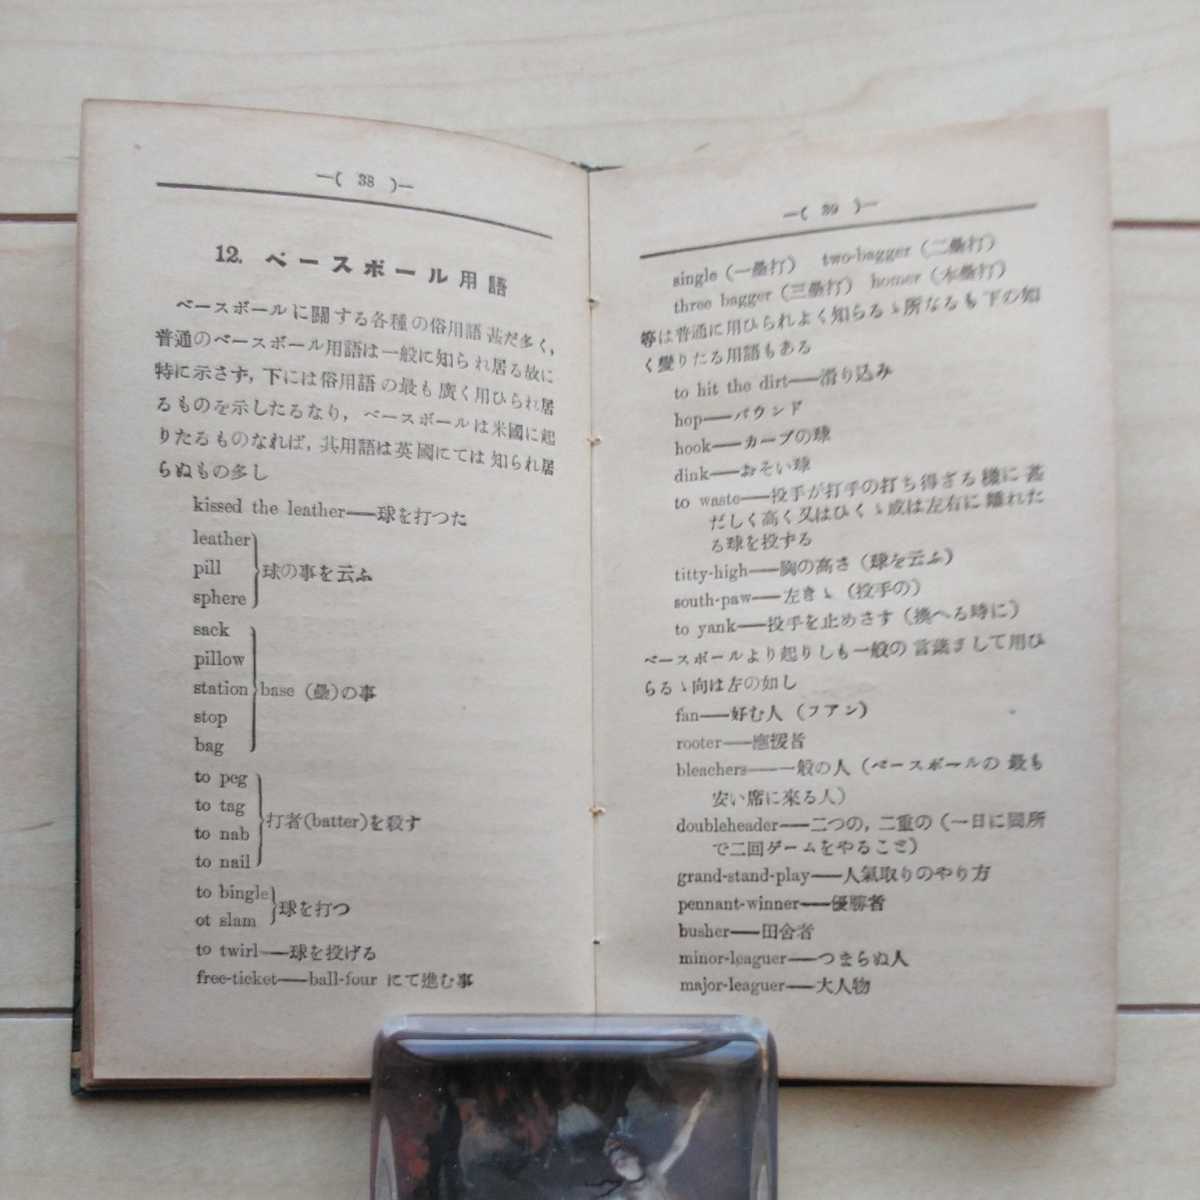 —( 38 )—
12. ベースボール用語
ベースボールに關する各種の俗用語甚だ多く,
普通のベースボール用語は一般に知られ居る故に
特に示さず, 下には俗用語の最も廣く用ひられ居
るものを示したるなり, ベースボールは米國に起
りたるものなれば, 其用語は英國にては知られ居
らぬもの多し
kissed the leather——球を打つた
leather
pill
sphere
球の事を云ふ
sack
pillow
station
stop
bag
base (壘)の事
to peg
to tag
to nab
to nail
打者(batter)を殺す
to bingle
ot slam
球を打つ
to twirl——球を投げる
free-ticket——ball-four にて進む事
—( 39 )—
single (一壘打) two-bagger (二壘打)
three bagger (三壘打) homer (本壘打)
等は普通に用ひられよく知らるゝ所なるも下の如
く變りたる用語もある
to hit the dirt——滑り込み
hop——バウンド
hook——カーブの球
dink——おそい球
to waste——投手が打手の打ち得ざる樣に甚
だしく高く又はひくゝ或は左右に離れた
る球を投ずる
titty-high——胸の高さ (球を云ふ)
south-paw——左きゝ (投手の)
to yank——投手を止めさす (換へる時に)
ベースボールより起りしも一般の言葉さして用ひ
らるゝ向は左の如し
fan——好む人 (フアン)
rooter——應援者
bleachers——一般の人 (ベースボールの最も
安い席に來る人)
doubleheader——二つの, 二重の (一日に同所
で二回ゲームをやるこさ)
grand-stand-play——人氣取りのやり方
pennant-winner——優勝者
busher——田舍者
minor-leaguer——つまらぬ人
major-leaguer——大人物